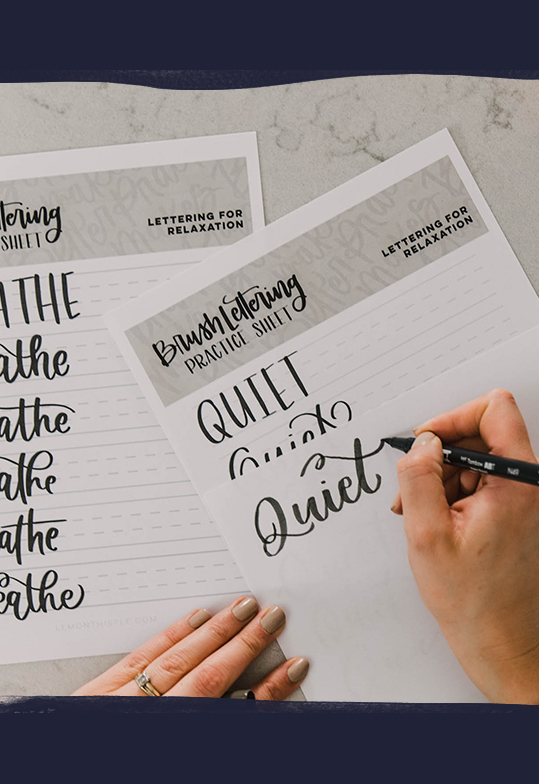 ttering
SHEET
LETTERING FOR
RELAXATION
ATHE
athe
athe
athe
athe
eathe
LEMONTHISTLE.COM
Brush Lettering
PRACTICE SHEET
LETTERING FOR
RELAXATION
QUIET
Quiet
Quiet
Tombow
N15